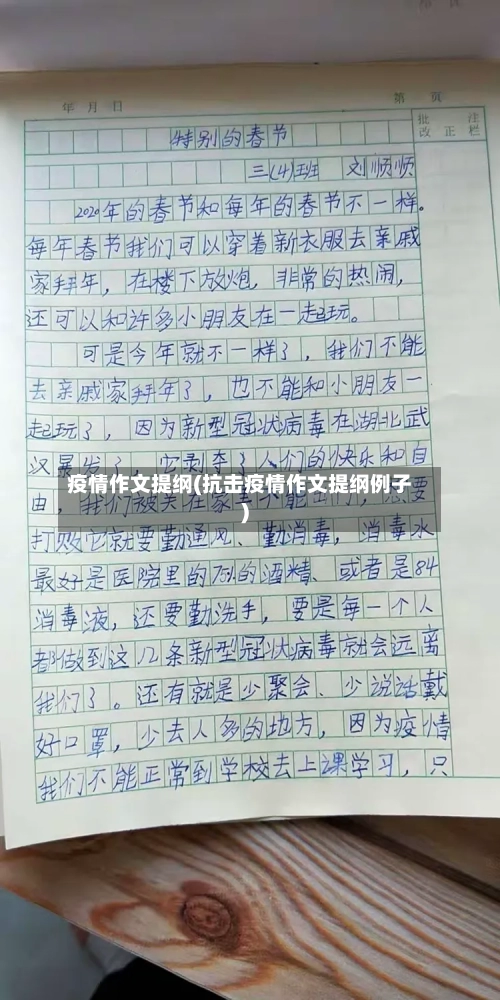 年 月 日
第 页
批 注
改 正 栏
特别的春节
三(4)班 刘顺顺
2020年的春节和每年的春节不一样。
每年春节我们可以穿着新衣服去亲戚
家拜年，在楼下放炮，非常的热闹，
还可以和许多小朋友在一起玩。
可是今年就不一样了，我们不能
去亲戚家拜年了，也不能和小朋友一
起玩了，因为新型冠状病毒在湖北武
汉暴发了，它剥夺了人们的快乐和自
疫情作文提纲(抗击疫情作文提纲例子
)
由，我们被关在家里不能出门，想要
打败它就要勤通风、勤消毒，消毒水
最好是医院里的75%的酒精、或者是84
消毒液，还要勤洗手，要是每一个人
都做到这几条新型冠状病毒就会远离
我们了。还有就是少聚会、少说话戴
好口罩，少去人多的地方，因为疫情
我们不能正常到学校去上课学习，只